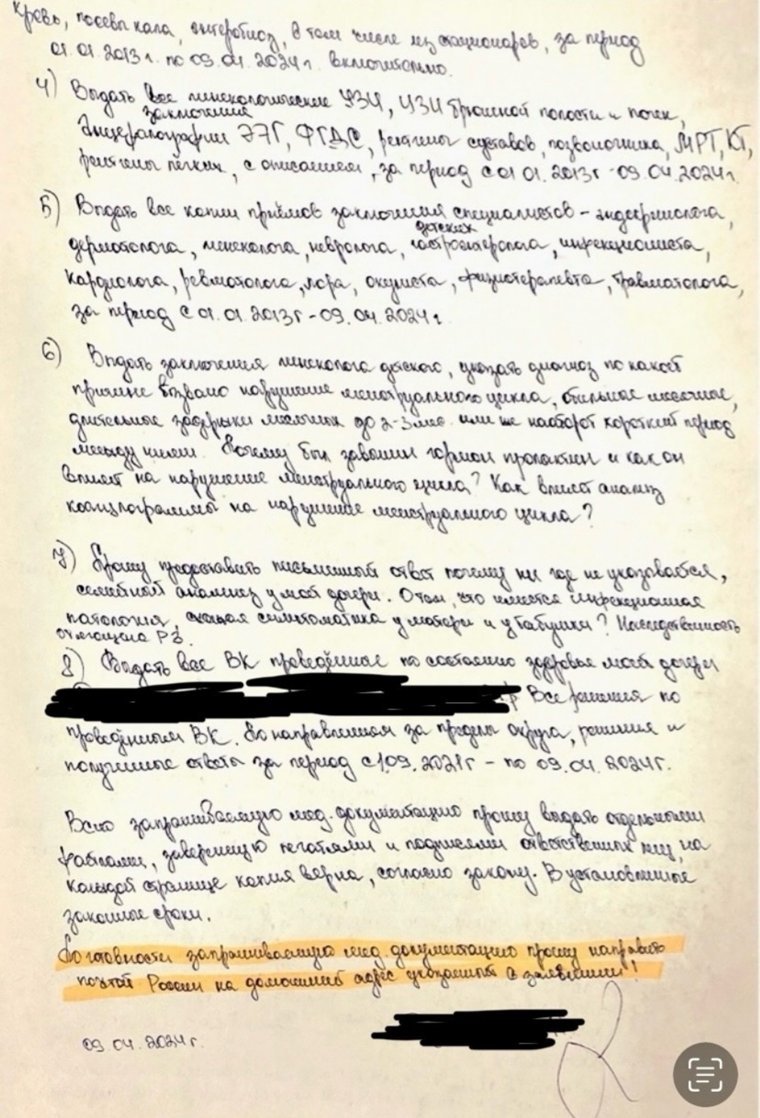 кровь, посевы кала, энтеробиоз, в том числе из стационаров, за период
01.01.2013 г. по 09.04.2024 г. включительно.
4) Выдать все гинекологические УЗИ, УЗИ брюшной полости и почек,
заключение
Энцефалографии ЭЭГ, ФГДС, рентгены суставов, позвоночника, МРТ, КТ,
рентгены лёгких, с описанием, за период с 01.01.2013 г - 09.04.2024 г.
5) Выдать все копии приёмов заключения специалистов - эндокринолога,
детских
дерматолога, гинеколога, невролога, гастроэнтеролога, инфекциониста,
кардиолога, ревматолога, лора, окулиста, физиотерапевта, травматолога,
за период с 01.01.2013 г - 09.04.2024 г.
6) Выдать заключения гинеколога детского, указать диагноз по какой
причине вызвано нарушение менструального цикла, обильное месячные,
длительные задержки месячных до 2-3 мес. или же наоборот короткий период
между ними. Почему был завышен гормон пролактин и как он
влияет на нарушение менструального цикла? Как влияет анализ
коагулограммы на нарушение менструального цикла?
7) Прошу предоставить письменный ответ почему ни где не указывается,
семейный анамнез у моей дочери. О том, что имеется инфекционная
патология, схожая симптоматика у матери и у бабушки? Наследственность
отягощена
8) Выдать все ВК проведённые по состоянию здоровья моей дочери
Все решения по
проведённым ВК. По направлениям за пределы округа, решения и
полученные ответы за период с 1.09.2021 г - по 09.04.2024 г.
Всю запрашиваемую мед. документацию прошу выдать отдельными
файлами, заверенную печатями и подписями ответственных лиц, на
каждой странице копия верна, согласно закону. В установленные
законные сроки.
По готовности запрашиваемую мед. документацию прошу направить
почтой России на домашний адрес указанный в заявлении!
09.04.2024 г.